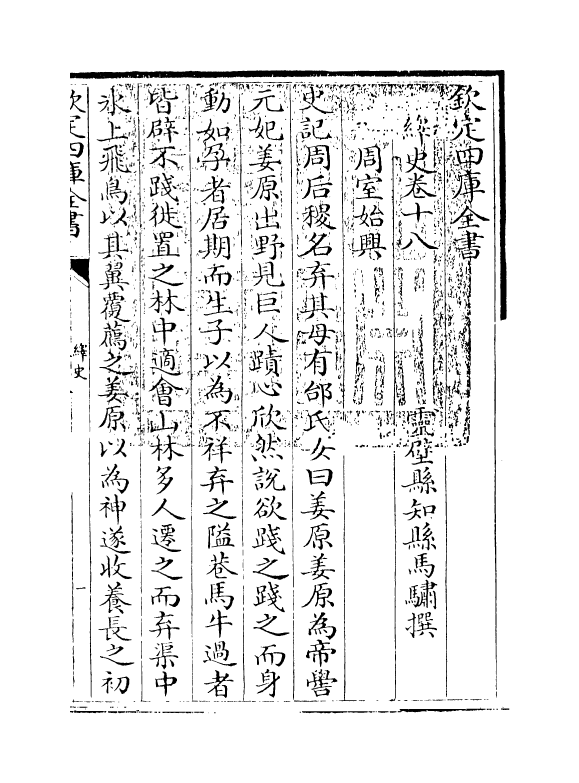 欽定四庫全書
繹史卷十八
靈壁縣知縣馬驌撰
周室始興
史記周后稷名弃其母有邰氏女曰姜原姜原為帝嚳
元妃姜原出野見巨人蹟心欣然說欲踐之踐之而身
動如孕者居期而生子以為不祥弃之隘巷馬牛過者
皆辟不踐徙置之林中適會山林多人遷之而弃渠中
冰上飛鳥以其翼覆薦之姜原以為神遂收養長之初
欽定四庫全書
繹史
一